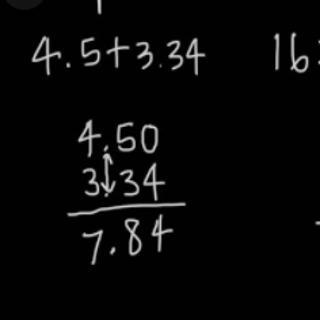 4.5+3.34
16
4.50
3.34
7.84